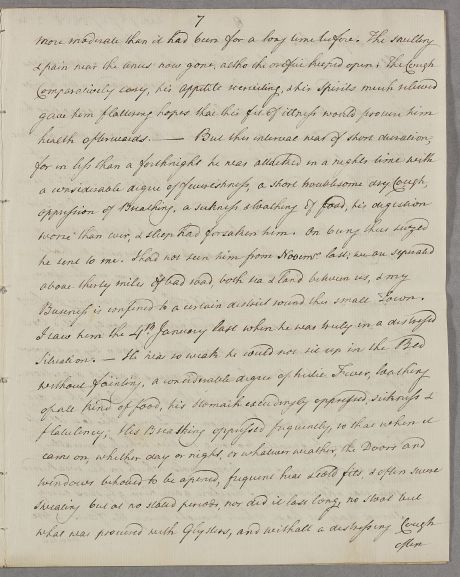 7
more moderate than it had been for a long time before. The swelling
& pain near the anus now gone, altho the orefice keeped open, The Cough
Comparatively easy, his appetite recruiting, & his Spirits much relieved
gave him flattering hopes that this fit of illness would procure him
health afterwards. — But this interval was of short duration,
for in less than a forthnight he was attacked in a nights time with
a considerable digree of feverishness, a short troublesome dry Cough,
oppression of Breathing, a sickness & loathing of food, his digestion
worse than ever, & sleep had forsaken him. On being thus seized
he sent to me. I had not seen him from Novemr last; we are separated
above thirty miles of bad road both sea & land between us, & my
Business is confined to a certain district round this small Town.
I saw him the 4th January last when he was truly in a distressed
Situation. — He was so weak he would not sit up in the Bed
without fainting, a considerable digree of hectic Fever, loathing
of all kind of food, his Stomach exceedingly oppressed, sickness &
flatulency; His Breathing oppressed frequently, so that when it
came on, whether day or night, or whatever weather, the Doors and
windows behoved to be opened, frequent heat & cold fits, & often severe
sweating but at no stated periods, nor did it last long, no stool but
what was procured with Glysters, and withall a distressing Cough
often